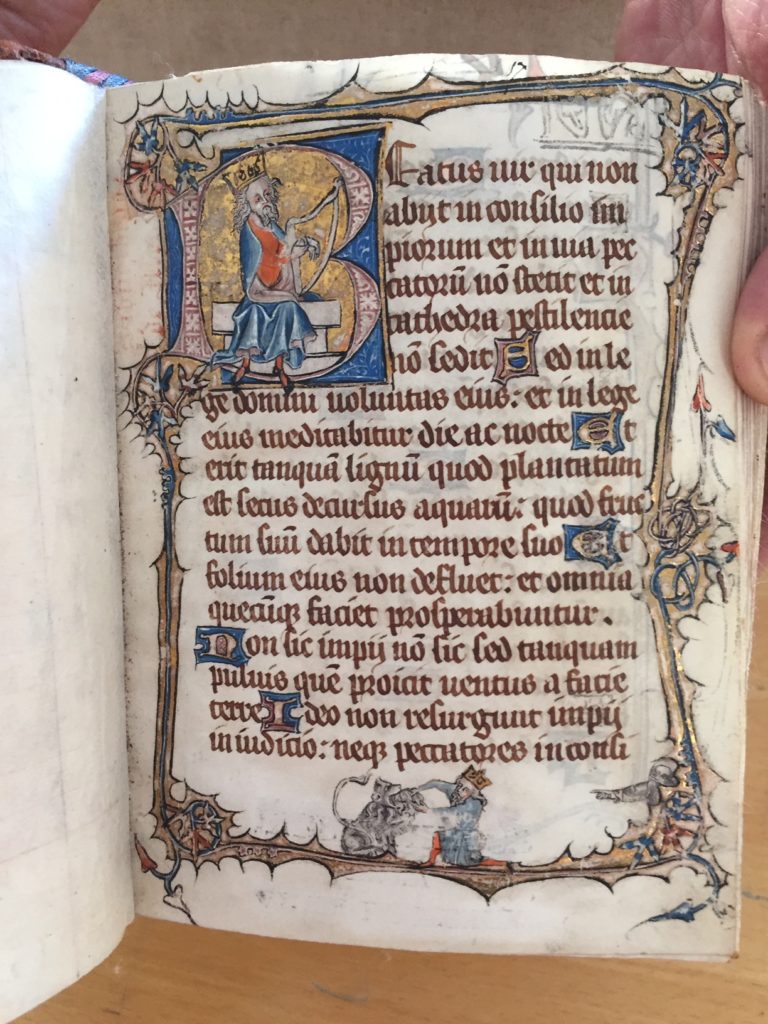 Beatus uir qui non
abiit in consilio im
piorum et in uia pec
catorū nō stetit et in
cathedra pestilencie
nō sedit Sed in le
ge domini uoluntas eius: et in lege
eius meditabitur die ac nocte Et
erit tanquā lignū quod plantatum
est secus decursus aquarū: quod fruc
tum suū dabit in tempore suo Et
folium eius non defluet: et omnia
quecūqꝫ faciet prosperabuntur.
Non sic impii nō sic sed tanquam
puluis quē proicit uentus a facie
terre Ideo non resurgunt impii
in iudicio: neqꝫ peccatores in consi